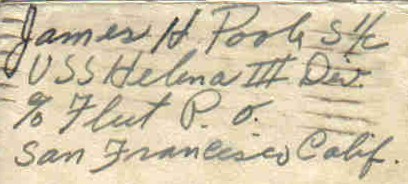 James H. Poole S1/c
USS Helena III Div.
% Fleet P. O.
San Francisco Calif.